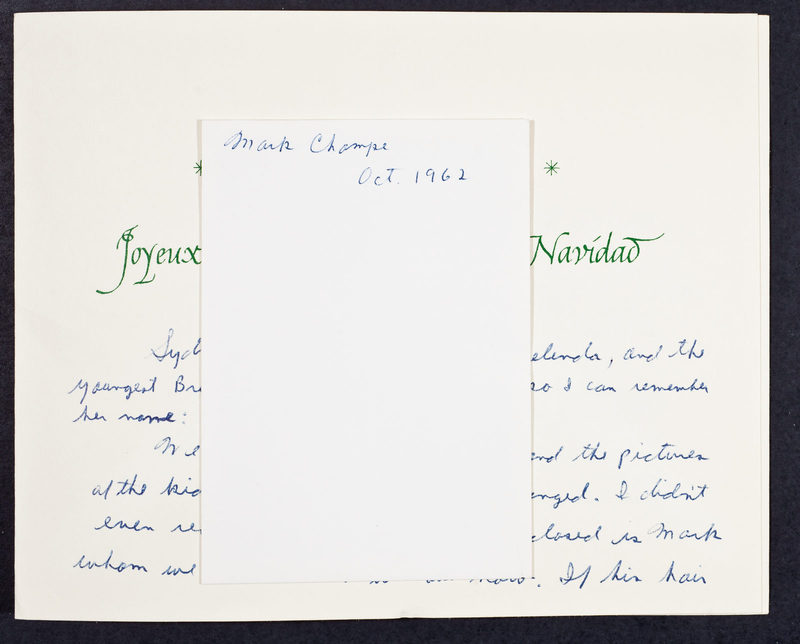 Mark Champe
Oct. 1962
Joyeux Navidad
Syd elenda, and the
youngest Bre so I can remember
her name:
We and the pictures
of the kid anged. I didn't
even re closed is Mark
whom we . If his hair